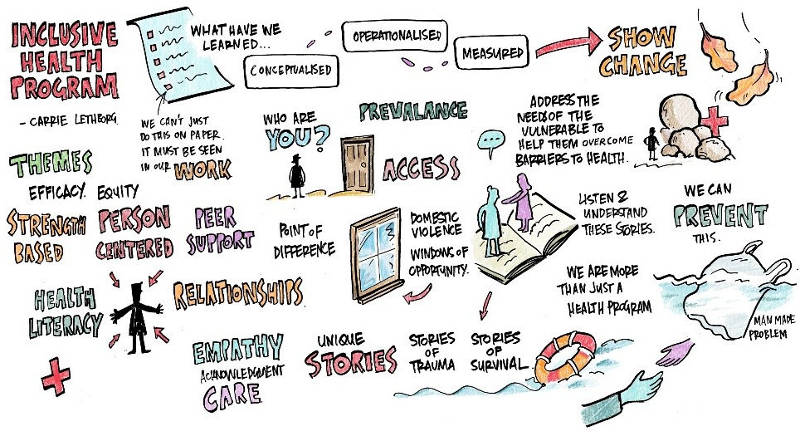 INCLUSIVE
HEALTH
PROGRAM
- CARRIE LETHBORG.
WHAT HAVE WE
LEARNED...
CONCEPTUALISED
OPERATIONALISED
MEASURED
SHOW
CHANGE
WE CAN'T JUST
DO THIS ON PAPER.
IT MUST BE SEEN
IN OUR WORK
WHO ARE
YOU?
PREVALANCE
ACCESS
ADDRESS THE
NEEDS OF THE
VULNERABLE TO
HELP THEM OVERCOME
BARRIERS TO HEALTH.
THEMES
EFFICACY. EQUITY
STRENGTH
BASED
PERSON
CENTERED
PEER
SUPPORT
POINT OF
DIFFERENCE
DOMESTIC
VIOLENCE
WINDOWS OF
OPPORTUNITY.
LISTEN &
UNDERSTAND
THESE STORIES.
WE CAN
PREVENT
THIS.
HEALTH
LITERACY
RELATIONSHIPS
WE ARE MORE
THAN JUST A
HEALTH PROGRAM
MAN MADE
PROBLEM
EMPATHY
ACKNOWLEDGMENT
CARE
UNIQUE
STORIES
STORIES
OF
TRAUMA
STORIES
OF
SURVIVAL